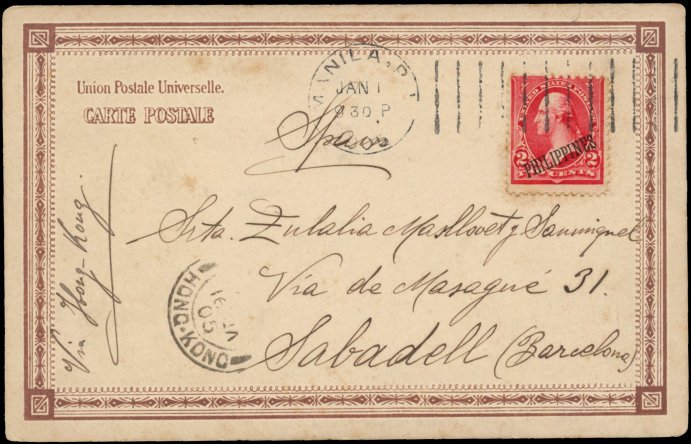 Union Postale Universelle.
CARTE POSTALE
MANILA, P.I.
JAN 1
930 P
1905
UNITED STATES POSTAGE
PHILIPPINES
2 2
CENTS
Spain
Srta. Eulalia Masllovet y Sanmiguel
Via de Masagué 31.
Sabadell (Barcelona)
Via Hong-Kong.
HONG-KONG
16 JA
05